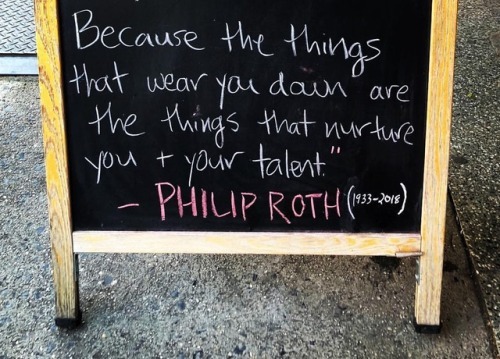 Because the things
that wear you down are
the things that nurture
you + your talent."
- PHILIP ROTH (1933-2018)